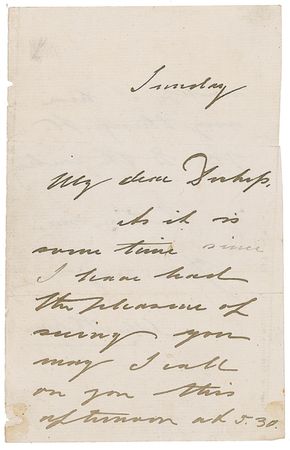 Sunday
My dear
As it is
some time since
I have had
the pleasure of
seeing you
may I call
on you this
afternoon at 5.30.